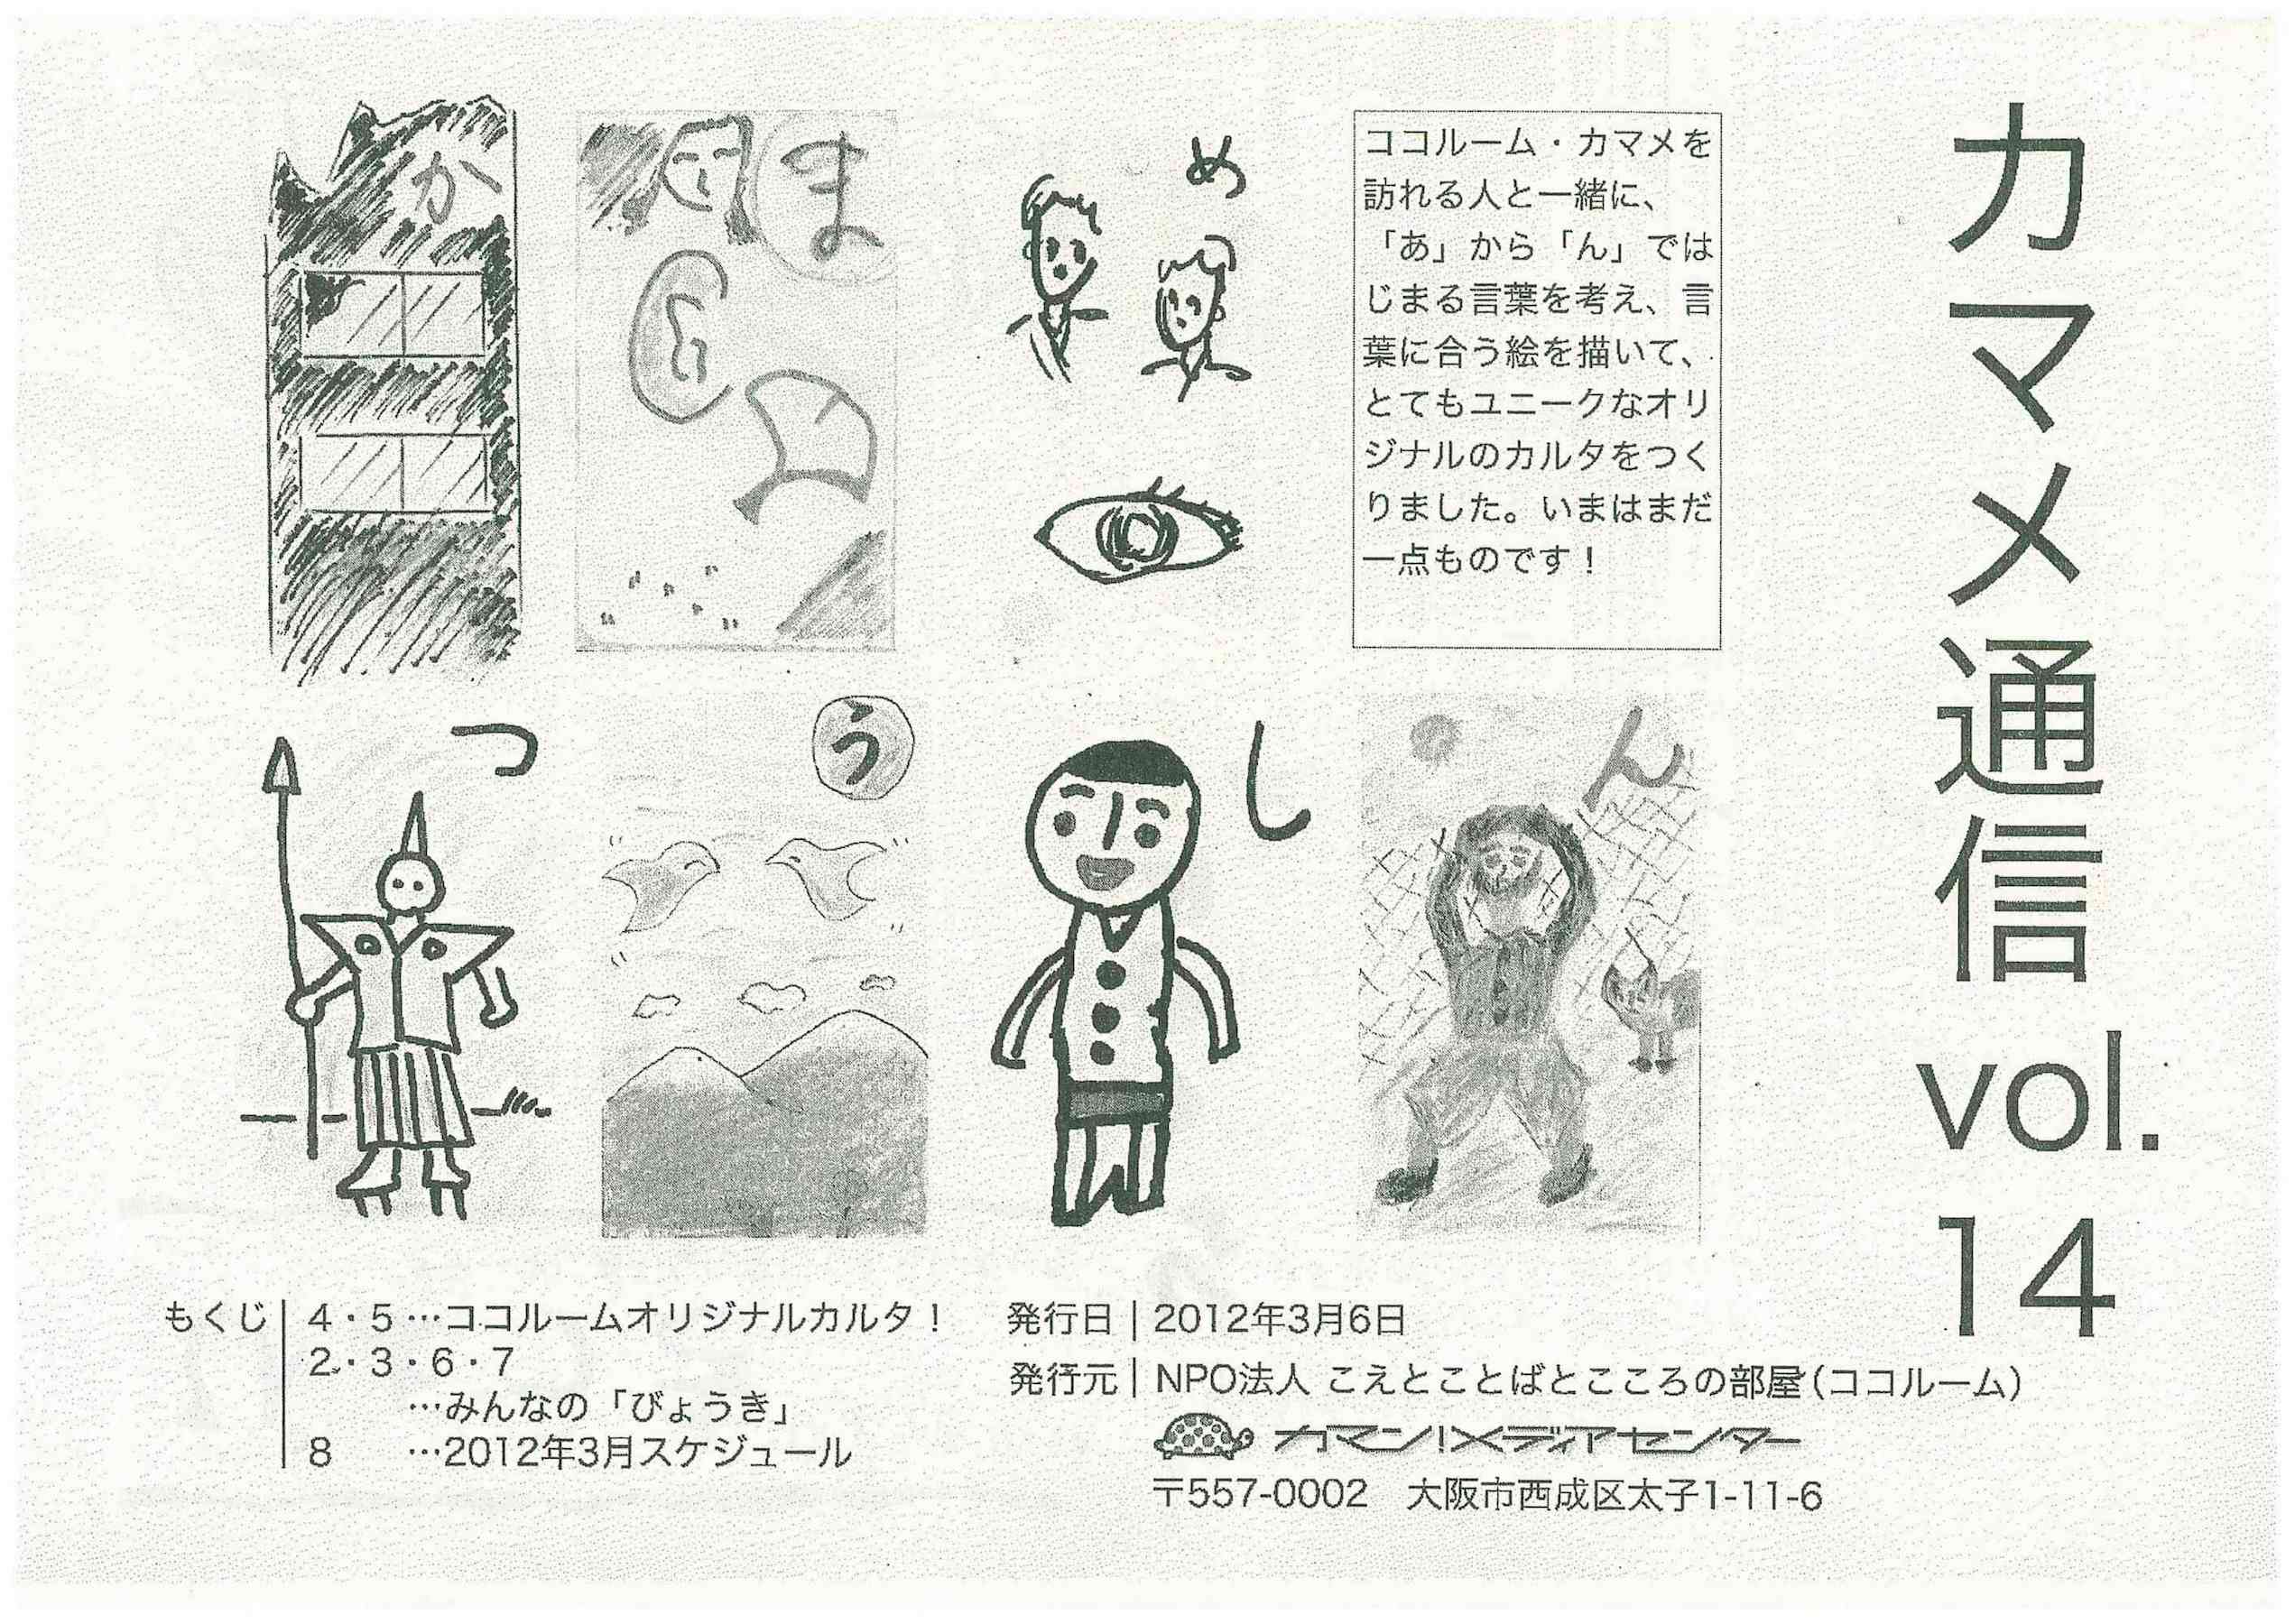 カマメ通信 vol. 14
ココルーム・カマメを
訪れる人と一緒に、
「あ」から「ん」では
じまる言葉を考え、言
葉に合う絵を描いて、
とてもユニークなオリ
ジナルのカルタをつく
りました。いまはまだ
一点ものです！
め
ま
か
ん
し
う
つ
もくじ
4・5…ココルームオリジナルカルタ！
2・3・6・7
…みんなの「びょうき」
8 …2012年3月スケジュール
発行日｜2012年3月6日
発行元｜NPO法人 こえとことばとこころの部屋（ココルーム）
カマン！メディアセンター
〒557-0002 大阪市西成区太子1-11-6